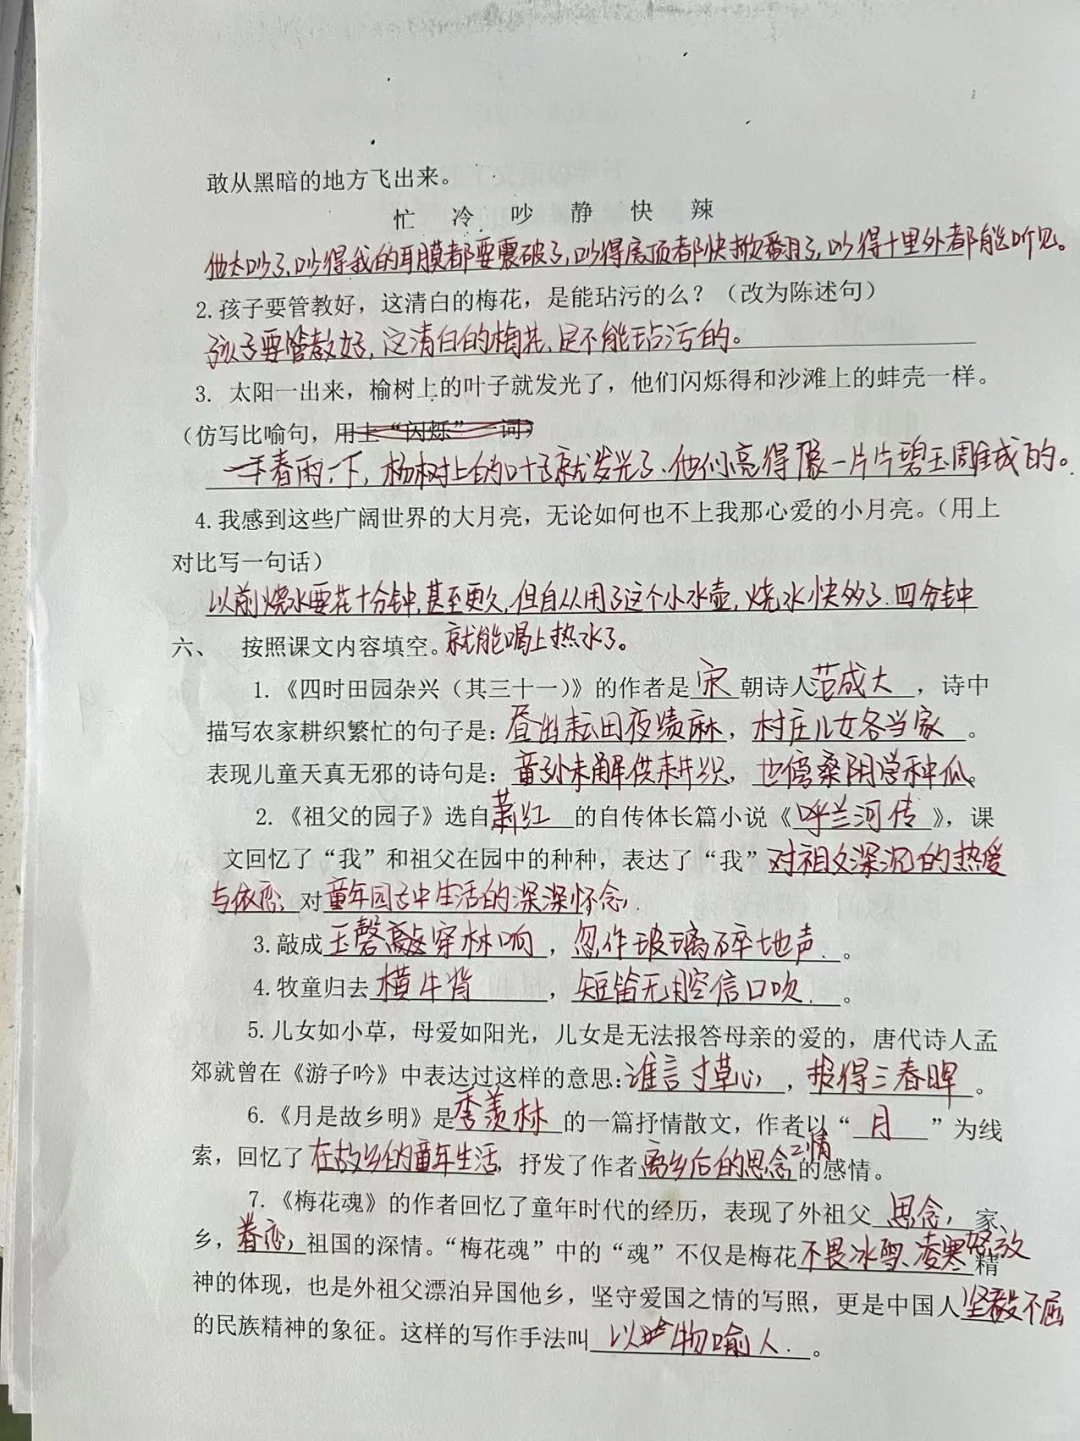 敢从黑暗的地方飞出来。
忙 冷 吵 静 快 辣
他太吵了,吵得我的耳膜都要震破了,吵得房顶都快掀翻了,吵得十里外都能听见。
2.孩子要管教好，这清白的梅花，是能玷污的么？（改为陈述句）
孩子要管教好,这清白的梅花,是不能玷污的。
3. 太阳一出来，榆树上的叶子就发光了，他们闪烁得和沙滩上的蚌壳一样。
（仿写比喻句，用上“闪烁”一词）
一年春雨一下,杨树上的叶子就发光了.他们亮得像一片片碧玉雕成的。
4.我感到这些广阔世界的大月亮，无论如何也不上我那心爱的小月亮。（用上
对比写一句话）
以前烧水要花十分钟,甚至更久,但自从用了这个小水壶,烧水快多了.四分钟
六、 按照课文内容填空。就能喝上热水了。
1.《四时田园杂兴（其三十一）》的作者是宋朝诗人范成大，诗中
描写农家耕织繁忙的句子是：昼出耘田夜绩麻，村庄儿女各当家。
表现儿童天真无邪的诗句是：童孙未解供耕织，也傍桑阴学种瓜。
2.《祖父的园子》选自萧红的自传体长篇小说《呼兰河传》，课
文回忆了“我”和祖父在园中的种种，表达了“我”对祖父深沉的热爱
与依恋，对童年园中生活的深深怀念，
3.敲成玉磬穿林响，忽作玻璃碎地声.。
4.牧童归去横牛背，短笛无腔信口吹.。
5.儿女如小草，母爱如阳光，儿女是无法报答母亲的爱的，唐代诗人孟
郊就曾在《游子吟》中表达过这样的意思：谁言寸草心，报得三春晖。
6.《月是故乡明》是季羡林的一篇抒情散文，作者以“月”为线
索，回忆了在故乡的童年生活，抒发了作者离乡后的思念之情的感情。
7.《梅花魂》的作者回忆了童年时代的经历，表现了外祖父思念，家
乡，眷恋，祖国的深情。“梅花魂”中的“魂”不仅是梅花不畏冰雪、凌寒怒放精
神的体现，也是外祖父漂泊异国他乡，坚守爱国之情的写照，更是中国人坚毅不屈
的民族精神的象征。这样的写作手法叫以物喻人.。